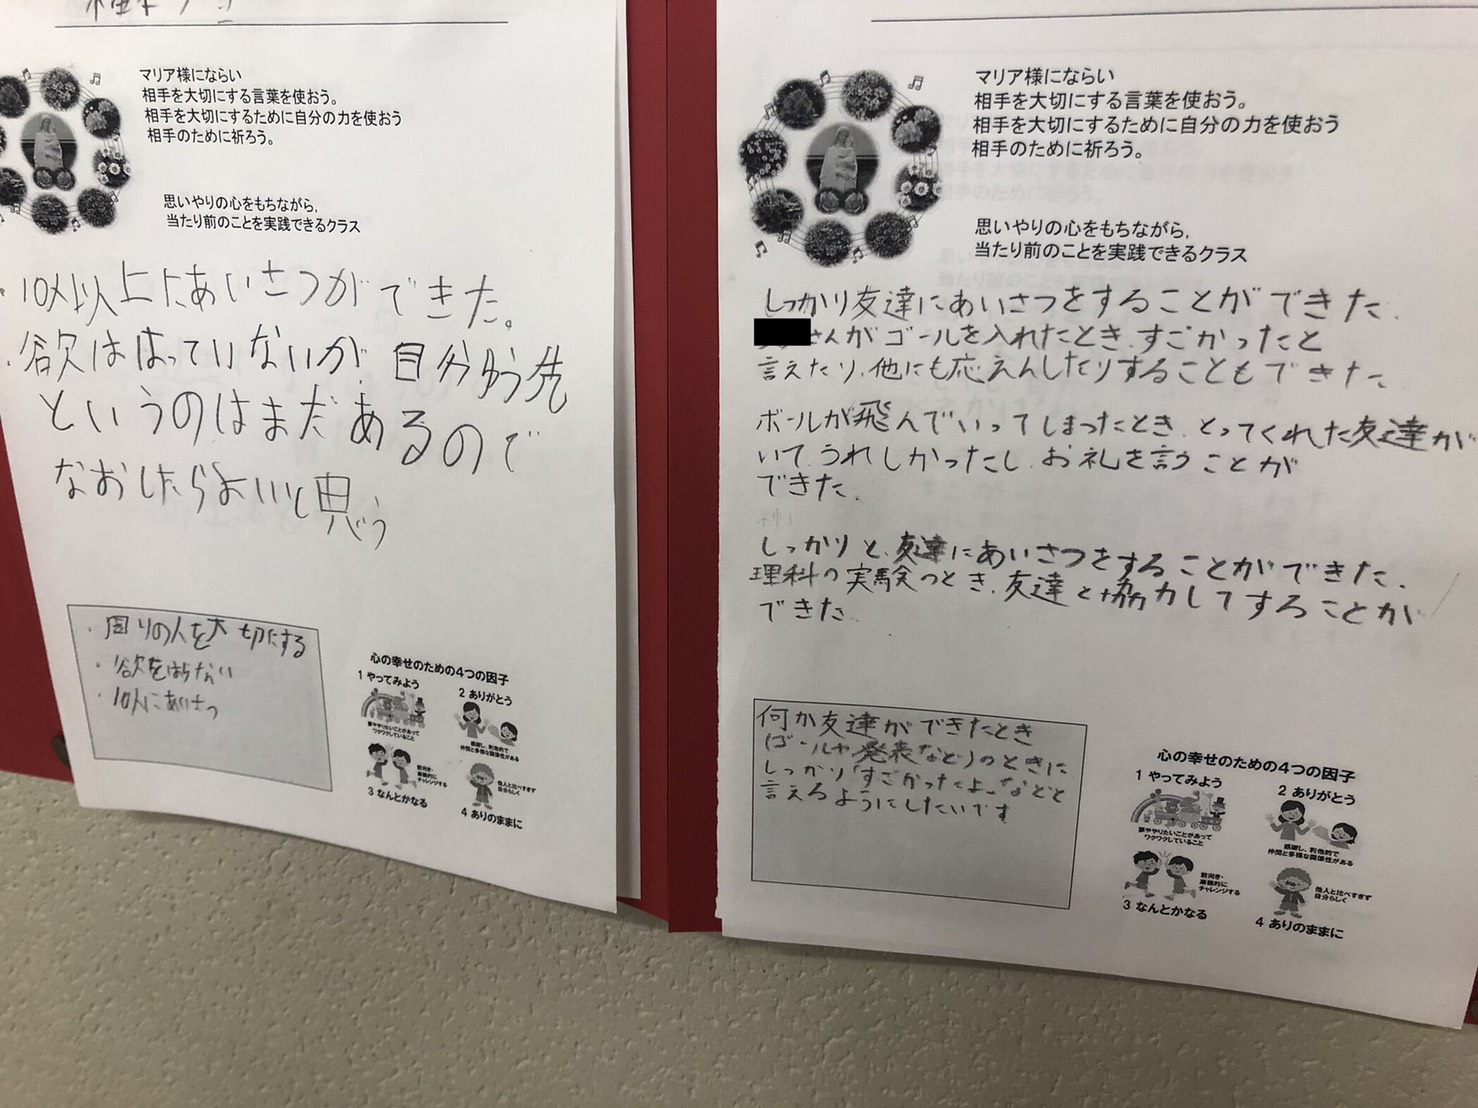 マリア様にならい
相手を大切にする言葉を使おう。
相手を大切にするために自分の力を使おう
相手のために祈ろう。
思いやりの心をもちながら,
当たり前のことを実践できるクラス
・10人以上にあいさつができた。
・欲ははっていないが自分ゆう先
というのはまだあるので
なおしたらよいと思う
・周りの人を大切にする
・欲をはらない
・10人にあいさつ
心の幸せのための4つの因子
1 やってみよう
夢ややりたいことがあって
ワクワクしていること
2 ありがとう
感謝し、利他的で
仲間と多様な関係性がある
3 なんとかなる
前向き・
楽観的に
チャレンジする
4 ありのままに
他人と比べすぎず
自分らしく
マリア様にならい
相手を大切にする言葉を使おう。
相手を大切にするために自分の力を使おう
相手のために祈ろう。
思いやりの心をもちながら,
当たり前のことを実践できるクラス
しっかり友達にあいさつをすることができた.
さんがゴールを入れたとき,すごかったと
言えたり,他にも応えんしたりすることもできた
ボールが飛んでいってしまったとき,とってくれた友達が
いて,うれしかったし,お礼を言うことが
できた.
しっかりと,友達にあいさつをすることができた.
理科の実験のとき,友達と協力してすることが
できた.
何か友達ができたとき
(ゴールや発表など)のときに
しっかり「すごかったよ」などと
言えるようにしたいです
心の幸せのための4つの因子
1 やってみよう
夢ややりたいことがあって
ワクワクしていること
2 ありがとう
感謝し、利他的で
仲間と多様な関係性がある
3 なんとかなる
前向き・
楽観的に
チャレンジする
4 ありのままに
他人と比べすぎず
自分らしく